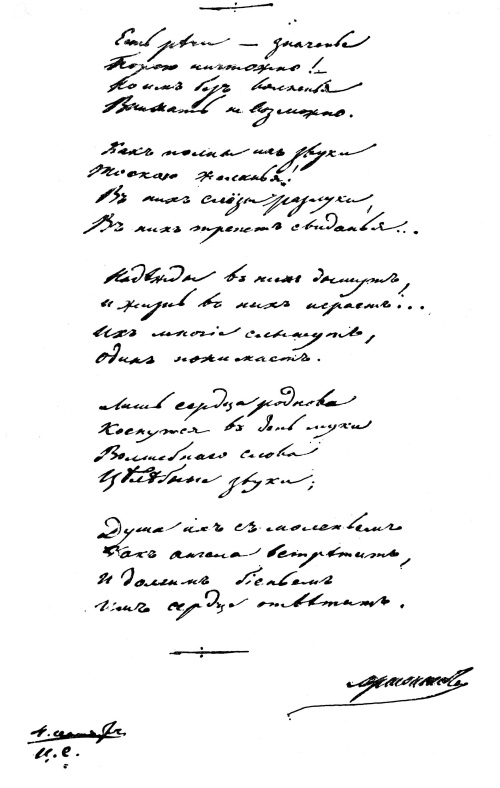 Есть рѣчи — значенье
Порою ничтожно!
Но имъ безъ волненья
Внимать не возможно.
Какъ полны ихъ звуки
Тоскою желанья!
Въ нихъ слёзы разлуки,
Въ нихъ трепетъ свиданья...
Надежды въ нихъ дышутъ,
И жизнь въ нихъ играетъ...
Ихъ многіе слышутъ,
Одинъ понимаетъ.
Лишь сердца роднова
Коснутся въ день муки
Волшебнаго слова
Цѣлѣбные звуки;
Душа ихъ съ моленьемъ
Какъ ангела встрѣтитъ,
И долгимъ біеньемъ
Имъ сердце отвѣтитъ.
Лермонтовъ